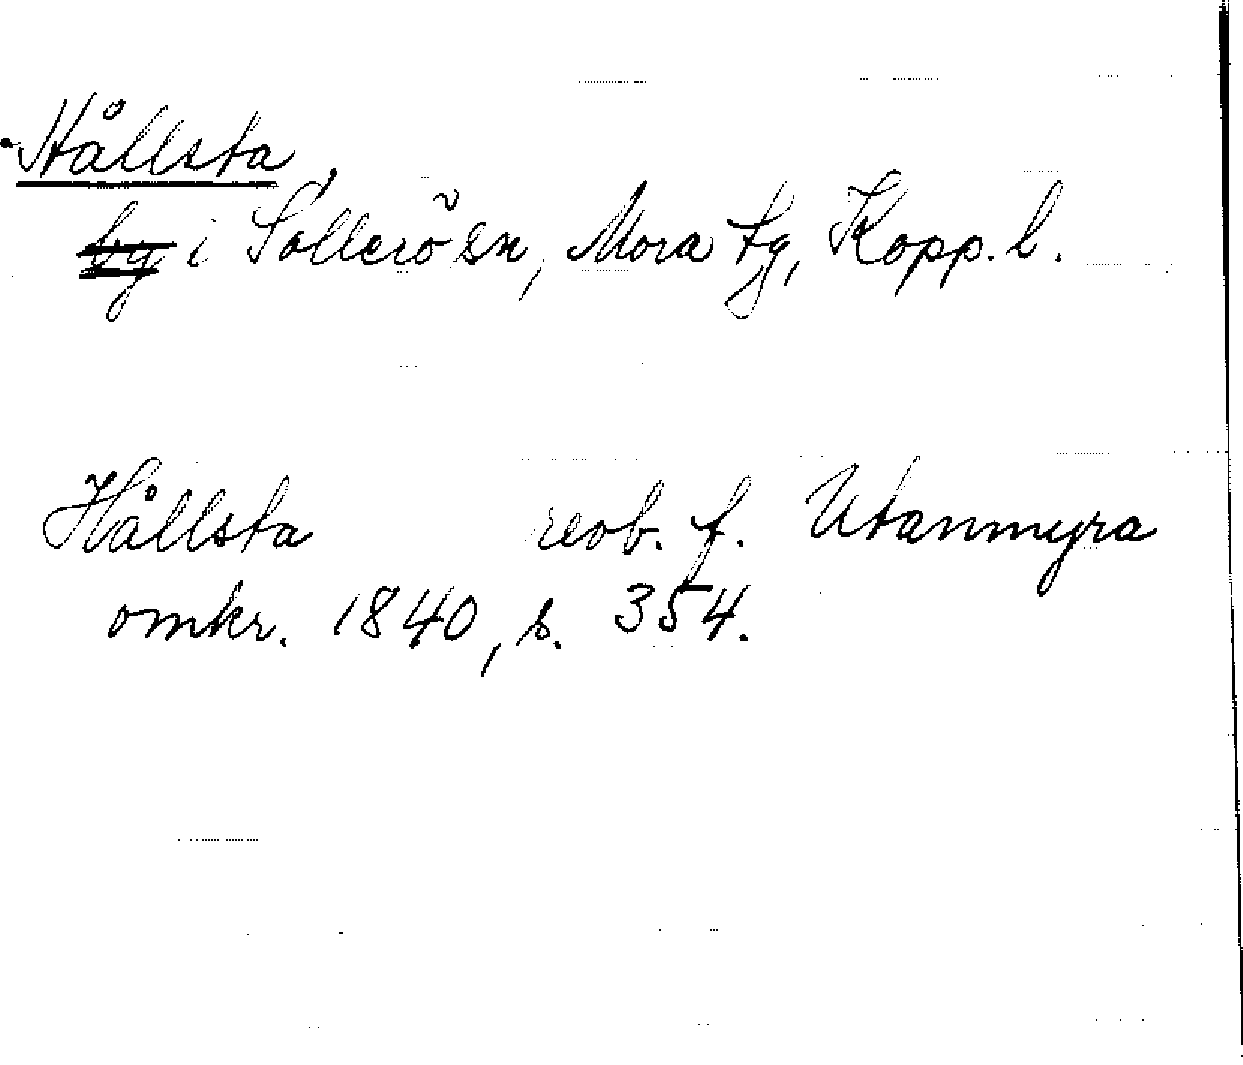 Hållsta
by i Sollerö sn, Mora tg, Kopp. l.
Hållsta reob. f. Utanmyra
omkr. 1840, s. 354.